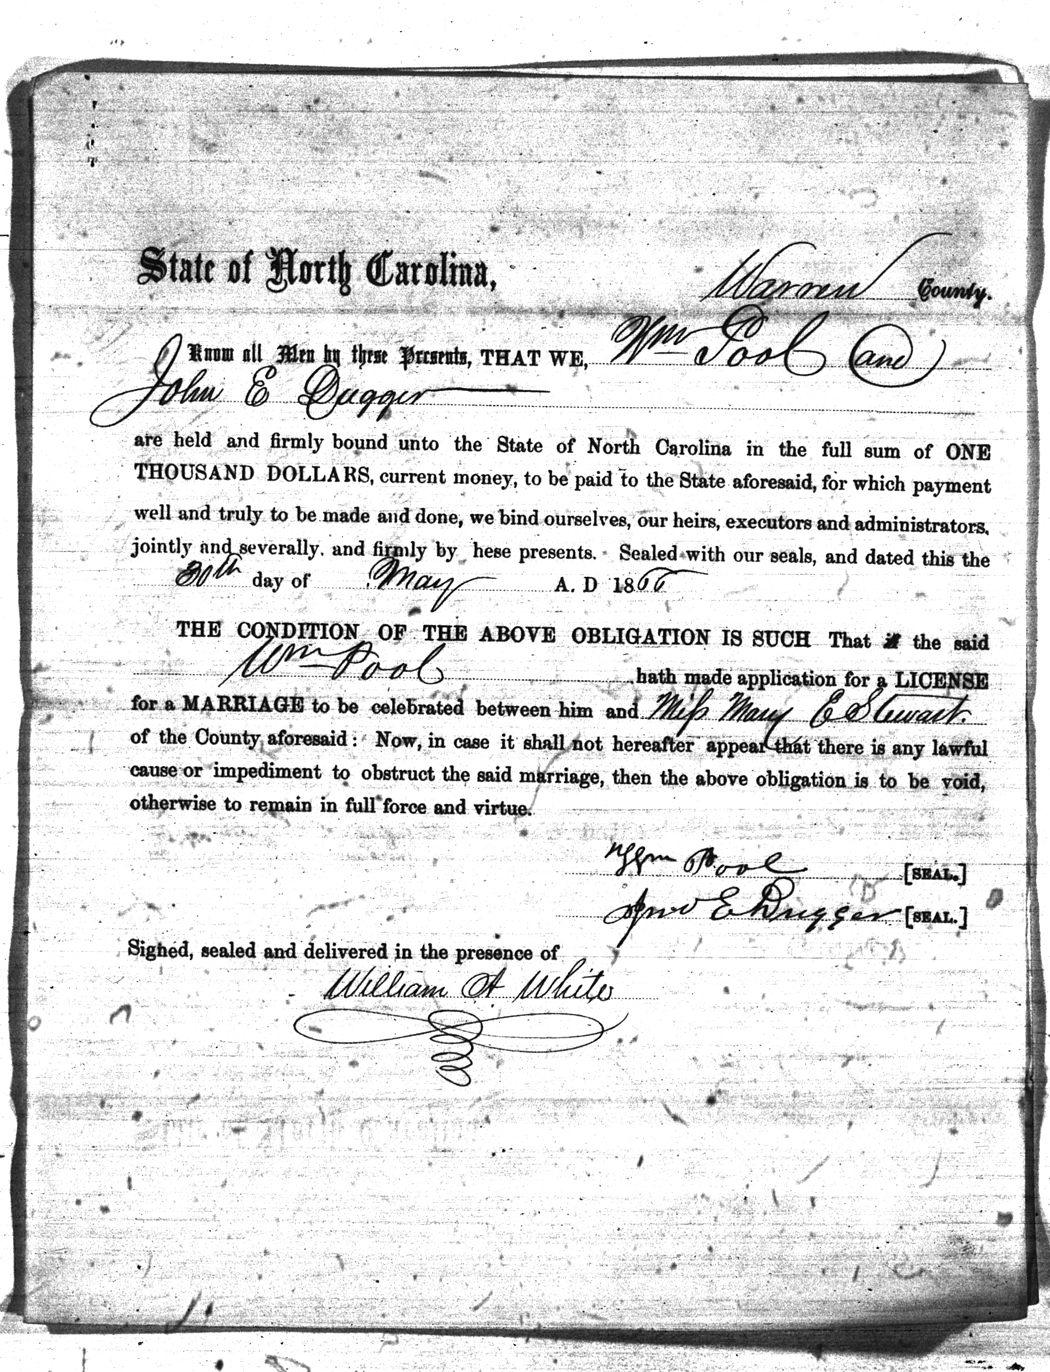 State of North Carolina,
Warren County.
Know all Men by these Presents, THAT WE, Wm Pool and
John E Dugger
are held and firmly bound unto the State of North Carolina in the full sum of ONE
THOUSAND DOLLARS, current money, to be paid to the State aforesaid, for which payment
well and truly to be made and done, we bind ourselves, our heirs, executors and administrators,
jointly and severally. and firmly by hese presents. Sealed with our seals, and dated this the
30th day of May A. D 1866
THE CONDITION OF THE ABOVE OBLIGATION IS SUCH That if the said
Wm Pool hath made application for a LICENSE
for a MARRIAGE to be celebrated between him and Miss Mary E Stewart.
of the County aforesaid: Now, in case it shall not hereafter appear that there is any lawful
cause or impediment to obstruct the said marriage, then the above obligation is to be void,
otherwise to remain in full force and virtue.
Wm Pool [SEAL.]
Jno E Dugger [SEAL.]
Signed, sealed and delivered in the presence of
William A White